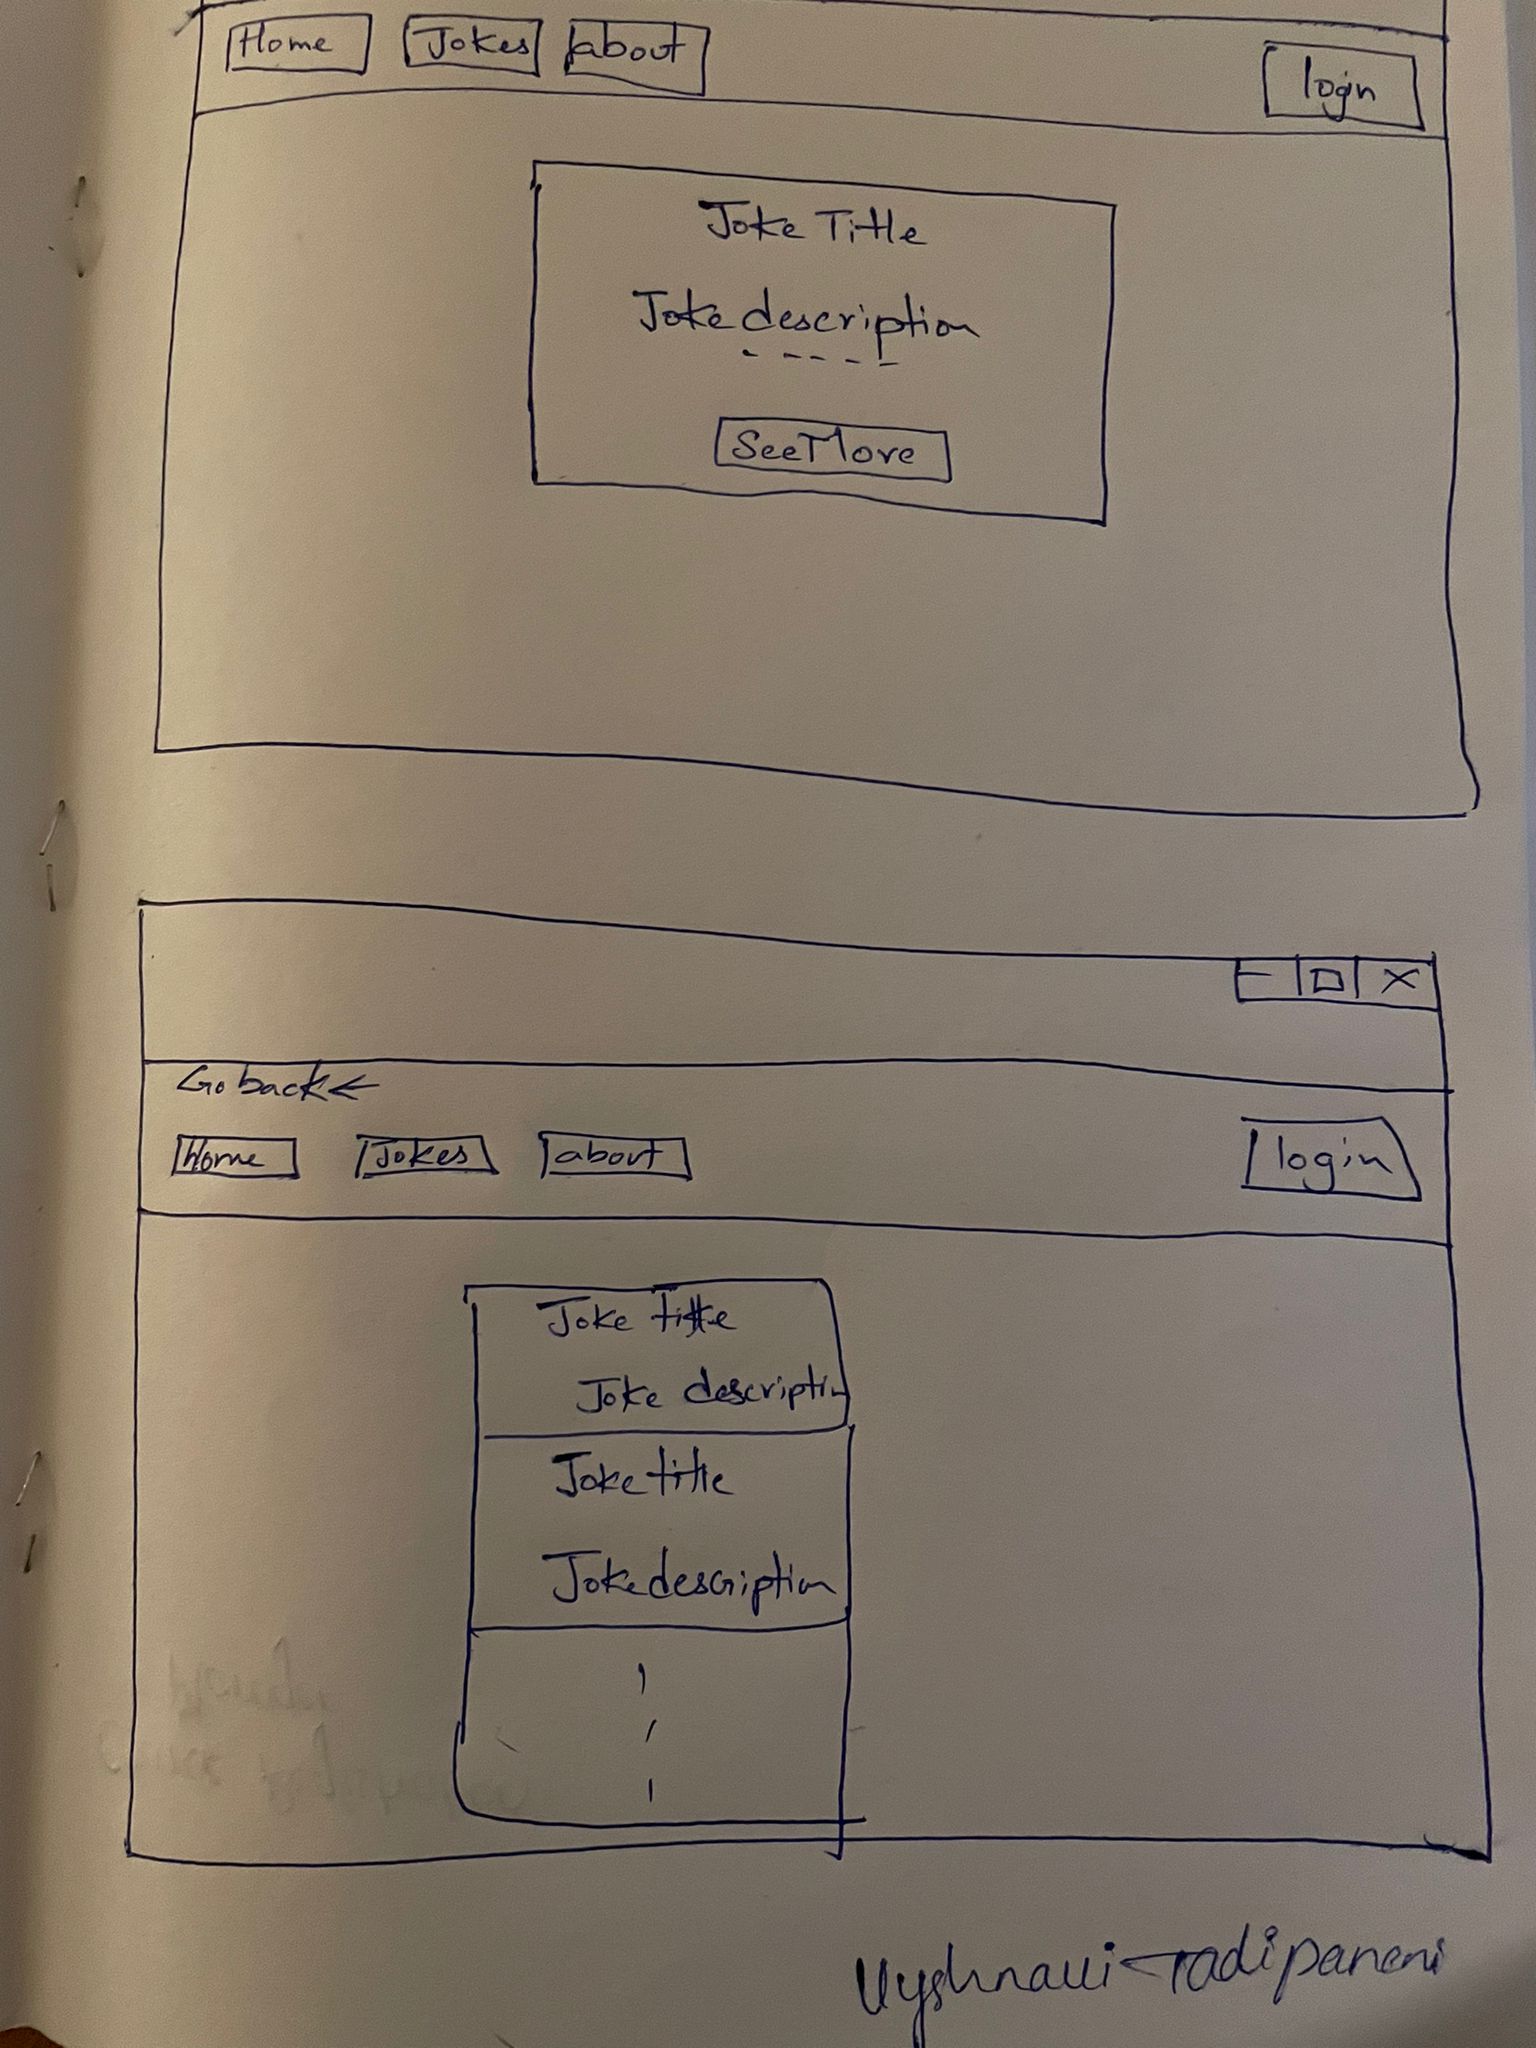 Home Jokes about login
Joke Title
Joke description
- - - - -
See More
- □ X
Go back ←
Home Jokes about login
Joke title
Joke description
Joke title
Joke description
Vyshnavi Tadipaneni